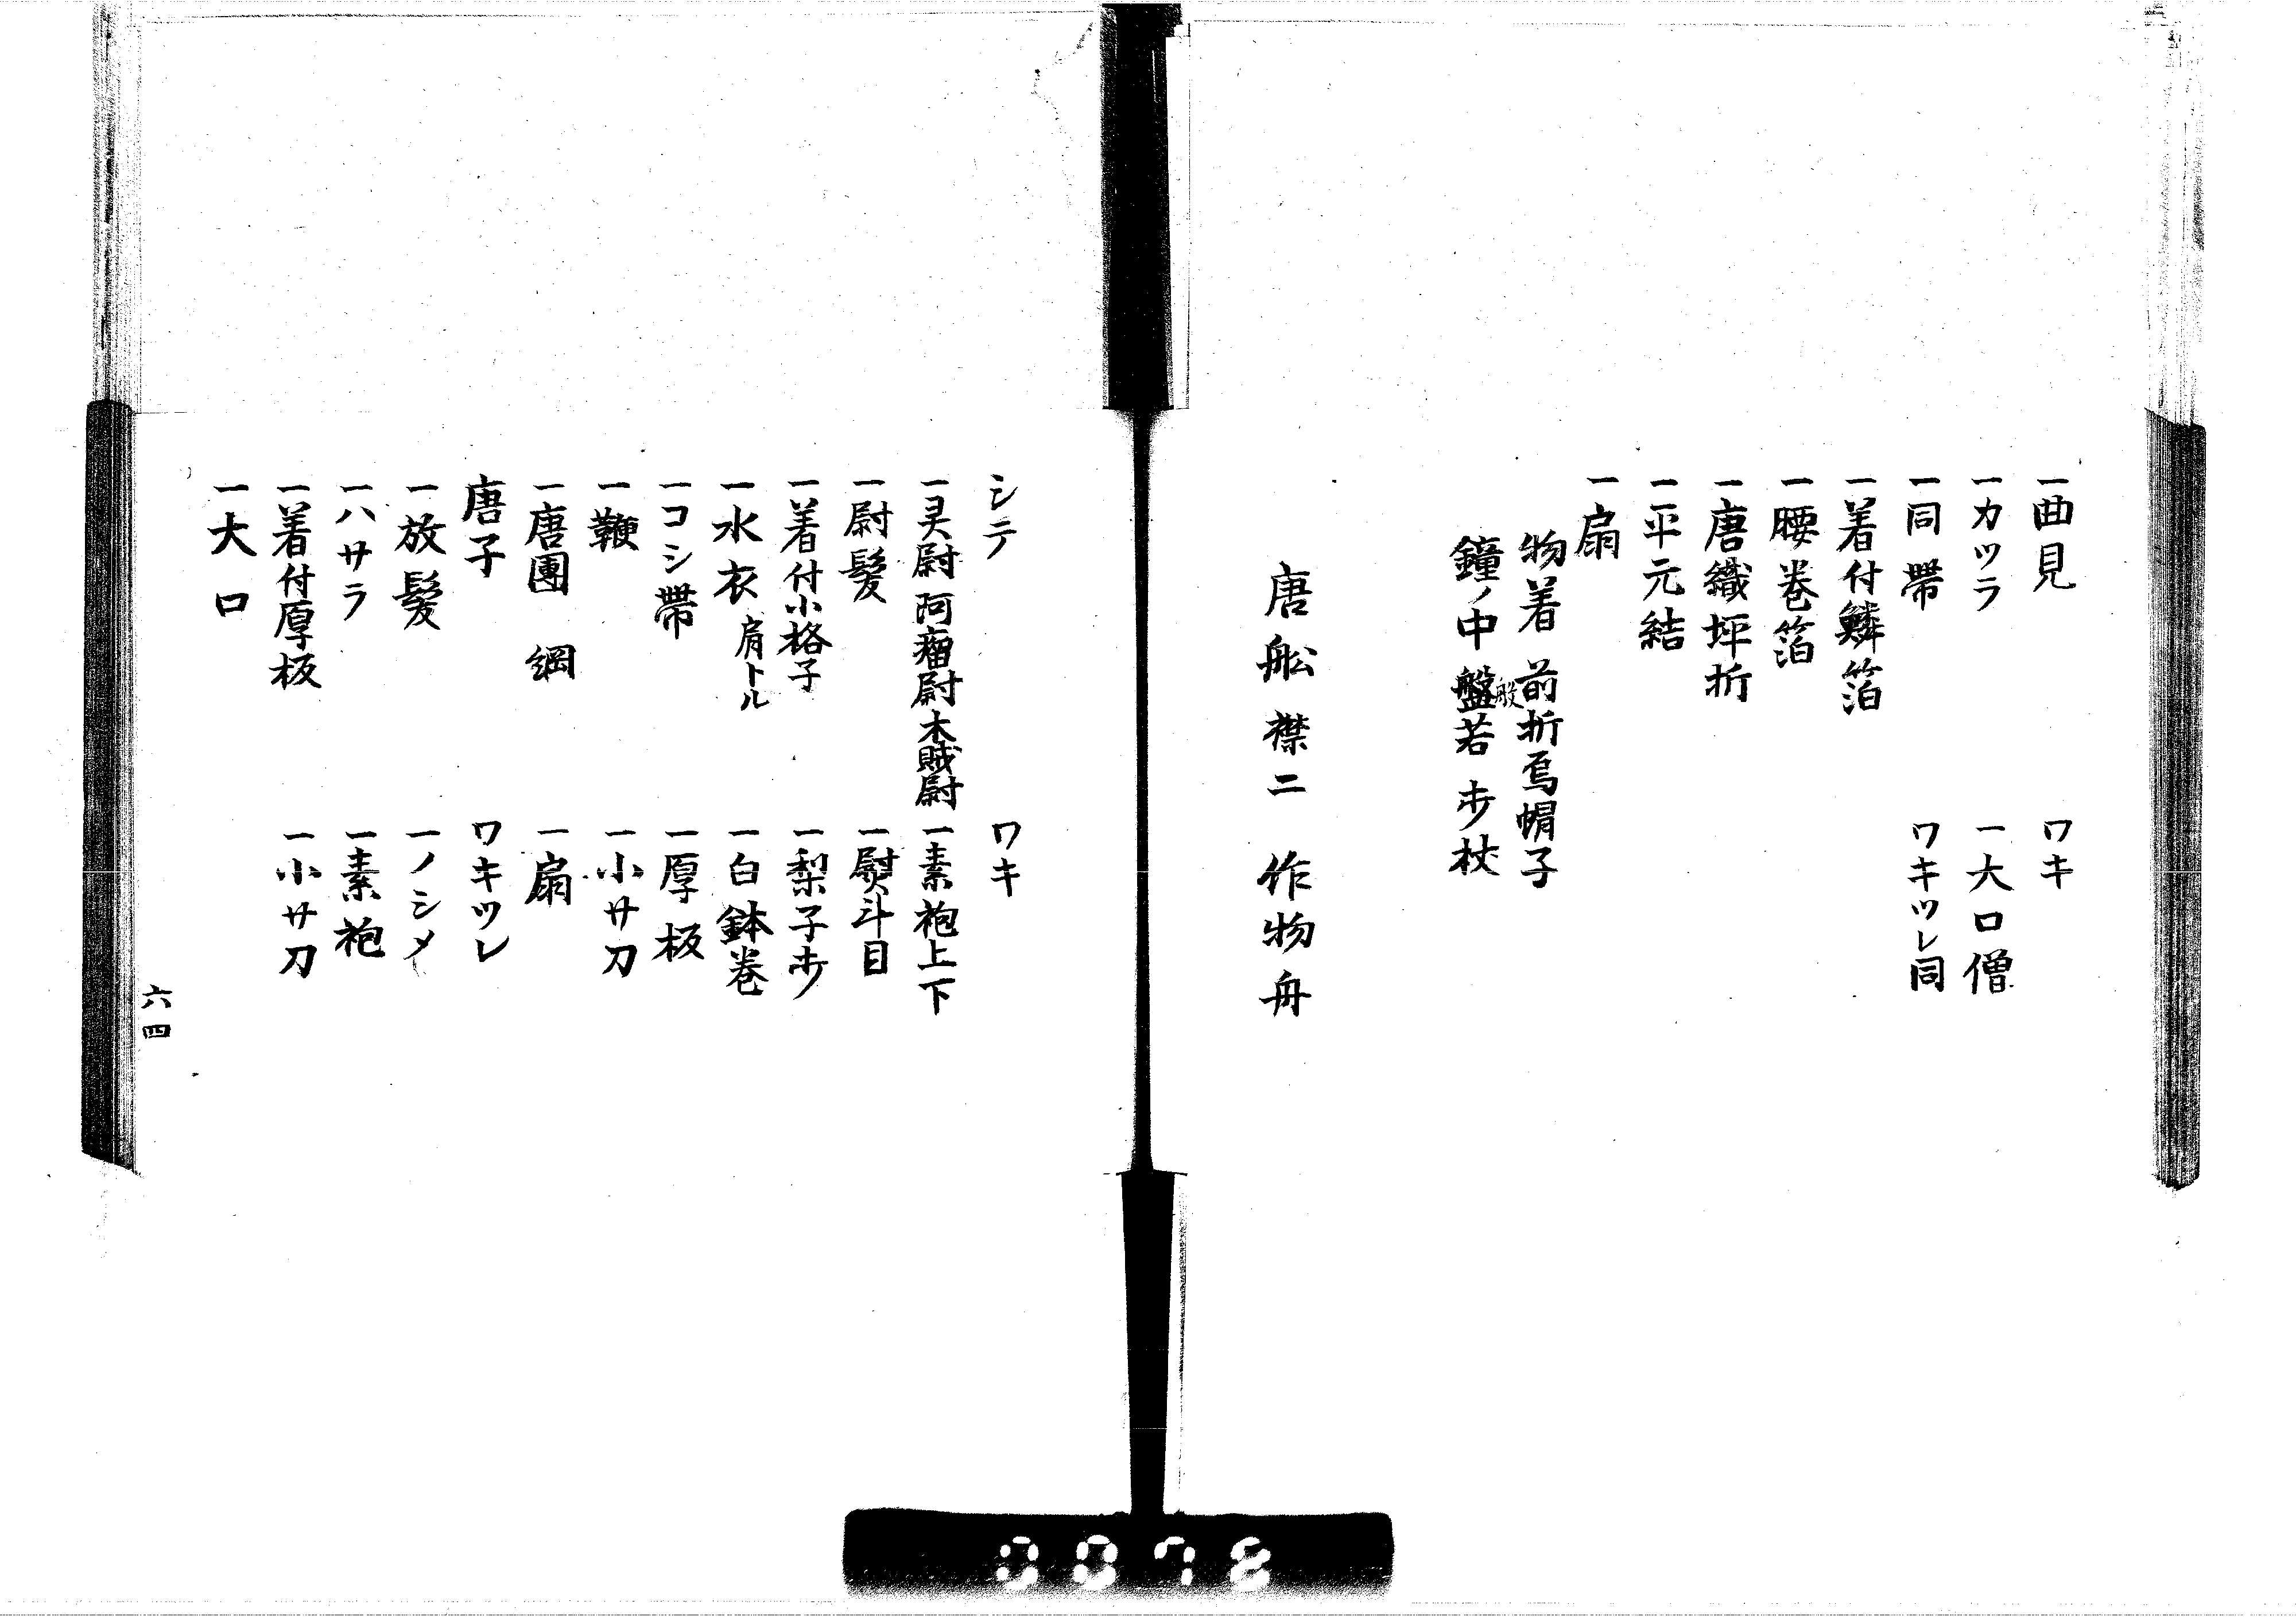 一曲見　ワキ
一カツラ　一大口僧
一同帯　ワキツレ同
一着付鱗箔
一腰巻箔
一唐織坪折
一平元結
一扇
物着　前折烏帽子
鐘ノ中　盤若　歩杖
般
唐舩　襟二　作物舟
シテ　ワキ
一灵尉　阿瘤尉　木賊尉　一素袍上下
一尉髪　一熨斗目
一着付小格子　一梨子歩
一水衣　肩トル　一白鉢巻
一コシ帯　一厚板
一鞭　一小サ刀
一唐團　綱　一扇
唐子　ワキツレ
一放髪　一ノシメ
一ハサラ　一素袍
一着付厚板　一小サ刀
一大口
六四